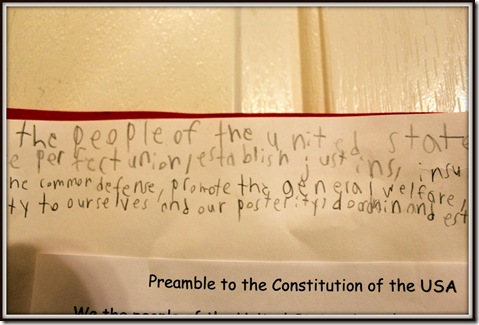 the people of the united state
e perfect union, establish just ins, insu
he common defense, promote the general welfare,
ty to ourselves and our posterity, do ordnin and est
Preamble to the Constitution of the USA
We the people of the United